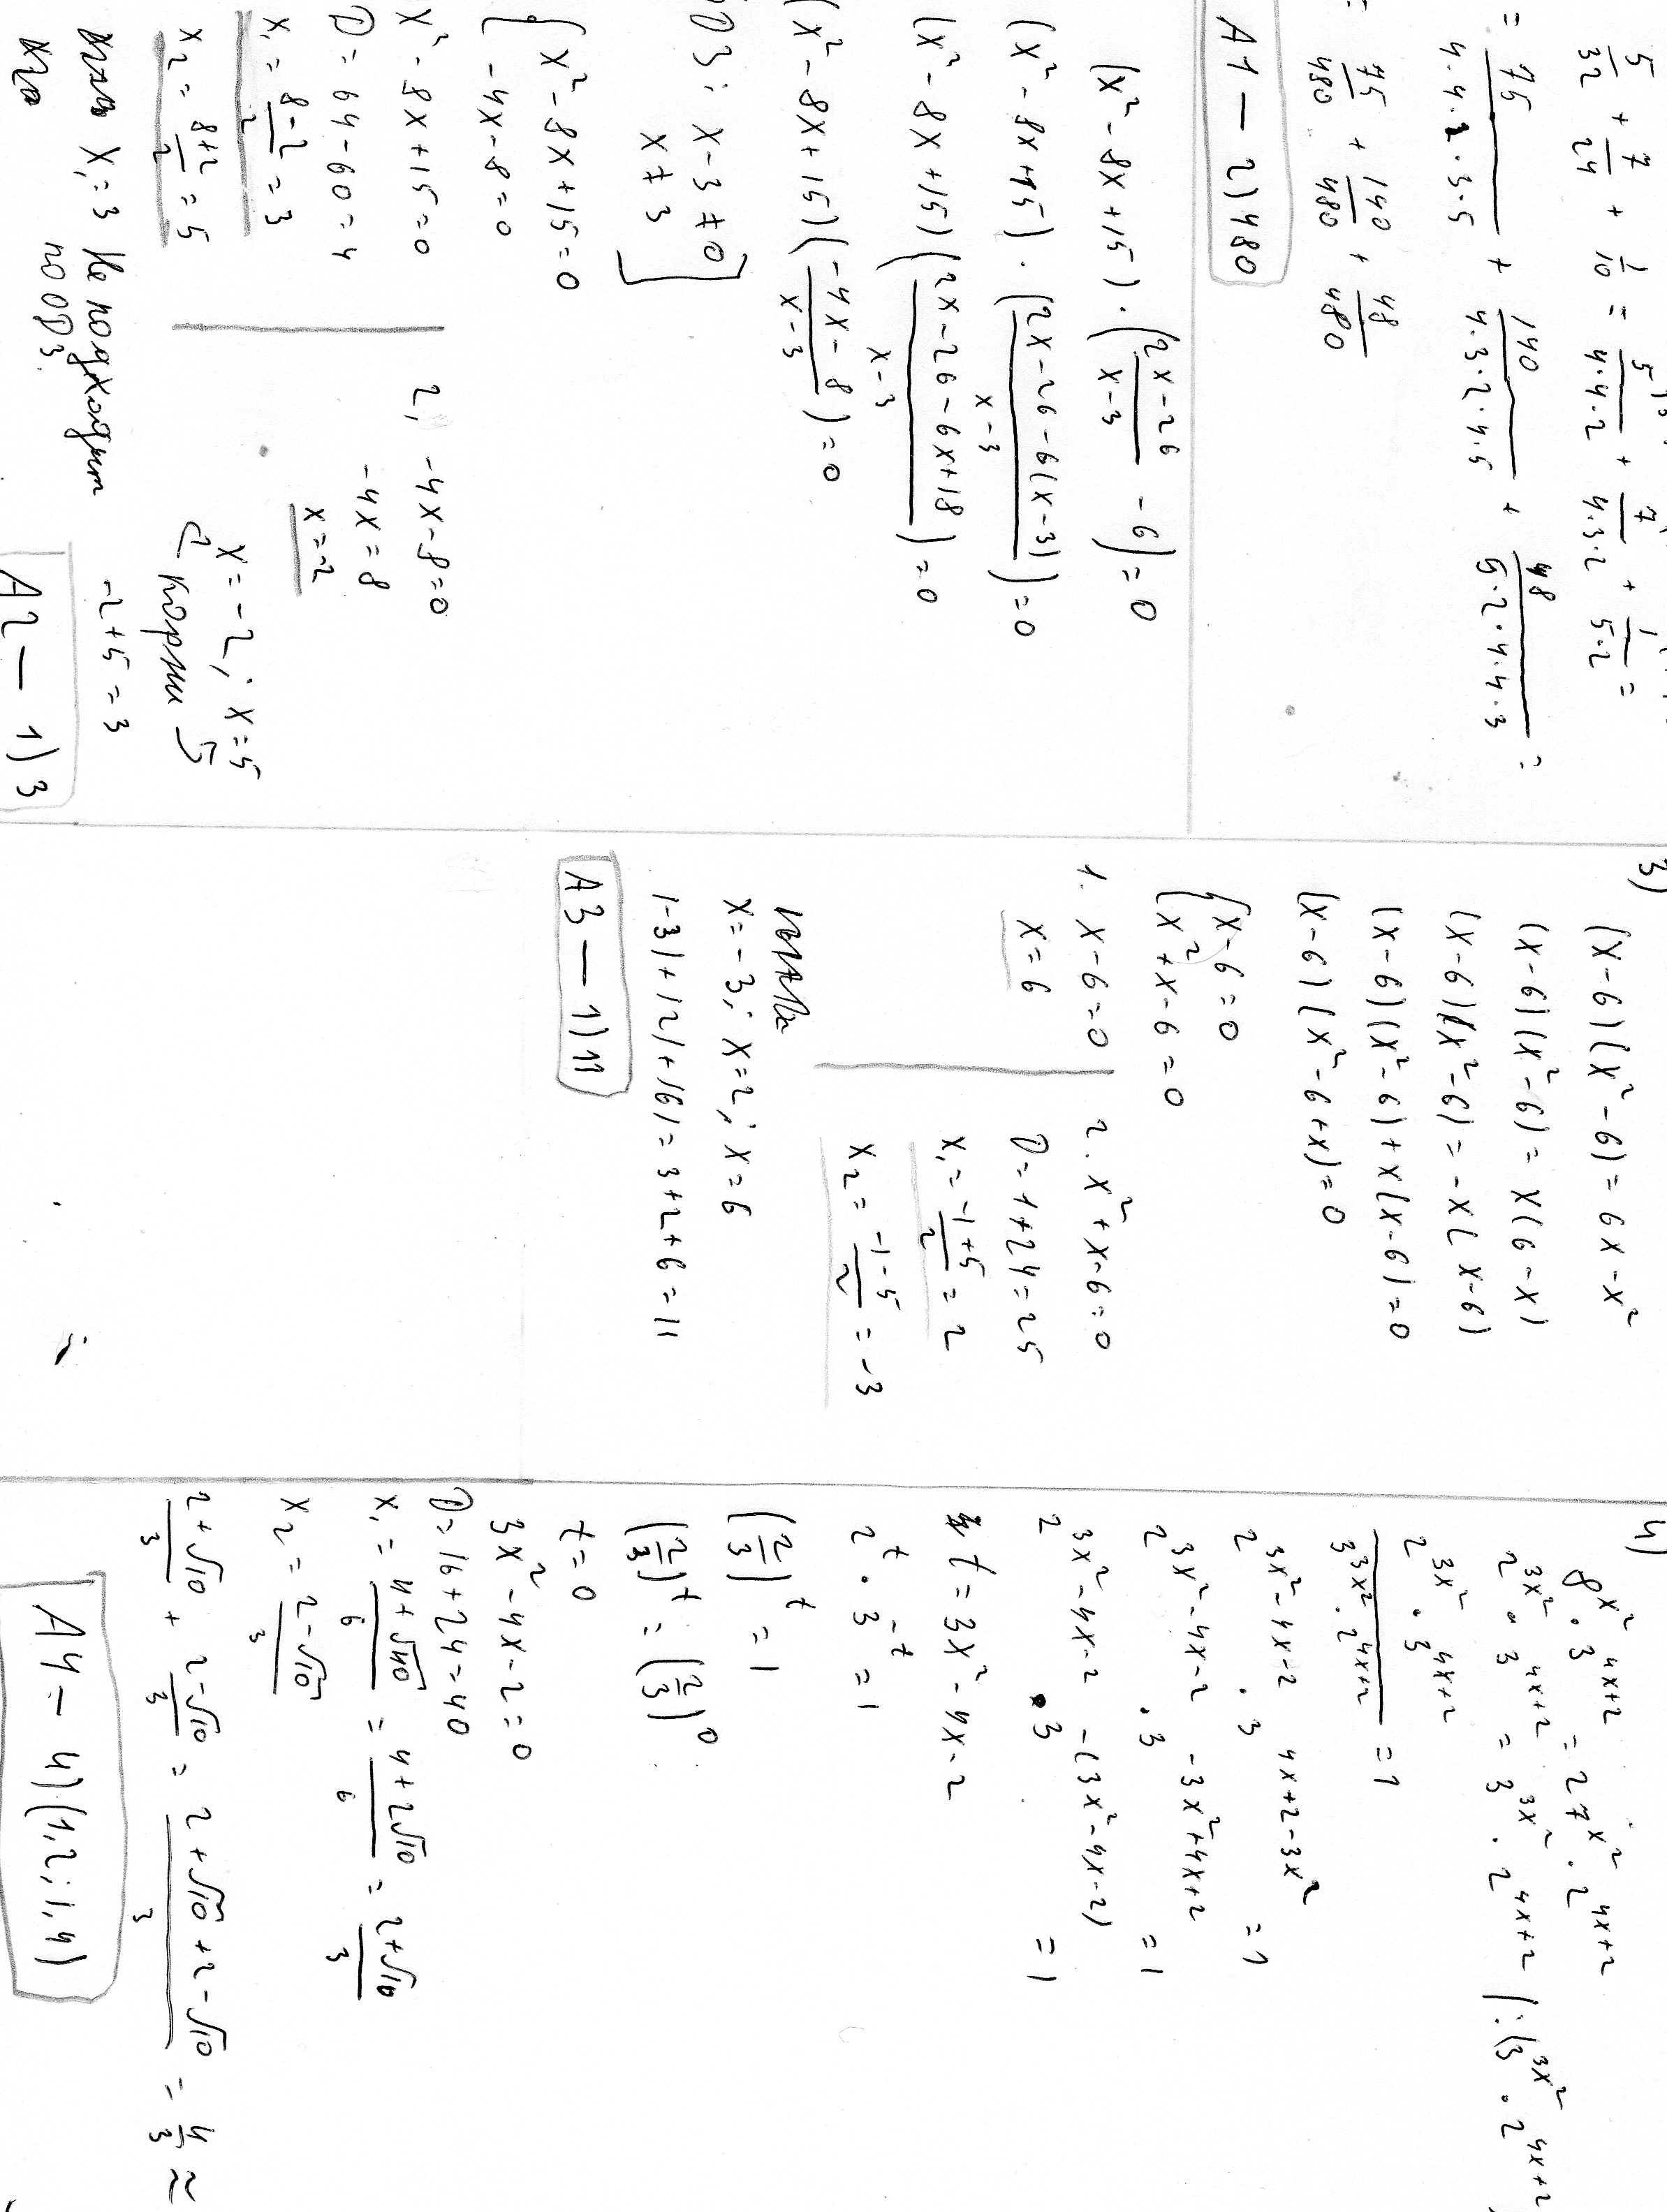 5/32 + 7/24 + 1/10 = 5/(4·4·2) + 7/(4·3·2) + 1/(5·2) =
= 75/(4·4·2·3·5) + 140/(4·3·2·4·5) + 48/(5·2·4·4·3) =
= 75/480 + 140/480 + 48/480
A1 — 2) 480
(x² - 8x + 15) · ((2x - 26)/(x - 3) - 6) = 0
(x² - 8x + 15) · ((2x - 26 - 6(x - 3))/(x - 3)) = 0
(x² - 8x + 15) ((2x - 26 - 6x + 18)/(x - 3)) = 0
(x² - 8x + 15) ((-4x - 8)/(x - 3)) = 0
ОДЗ: x - 3 ≠ 0
x ≠ 3
x² - 8x + 15 = 0
-4x - 8 = 0
x² - 8x + 15 = 0
D = 64 - 60 = 4
x₁ = (8 - 2)/2 = 3
x₂ = (8 + 2)/2 = 5
x₁ = 3 Не подходит
по ОДЗ.
2, -4x - 8 = 0
-4x = 8
x = -2
x = -2; x = 5
корни
-2 + 5 = 3
A2 — 1) 3
3)
(x - 6)(x² - 6) = 6x - x²
(x - 6)(x² - 6) = x(6 - x)
(x - 6)(x² - 6) = -x(x - 6)
(x - 6)(x² - 6) + x(x - 6) = 0
(x - 6)(x² - 6 + x) = 0
x - 6 = 0
x² + x - 6 = 0
1. x - 6 = 0
x = 6
2. x² + x - 6 = 0
D = 1 + 24 = 25
x₁ = (-1 + 5)/2 = 2
x₂ = (-1 - 5)/2 = -3
x = -3; x = 2; x = 6
|-3| + |2| + |6| = 3 + 2 + 6 = 11
A3 — 1) 11
4)
8^(x²) · 3^(4x+2) = 27^(x²) · 2^(4x+2)
2^(3x²) · 3^(4x+2) = 3^(3x²) · 2^(4x+2) | : (3^(3x²) · 2^(4x+2)
(2^(3x²) · 3^(4x+2))/(3^(3x²) · 2^(4x+2)) = 1
2^(3x²-4x-2) · 3^(4x+2-3x²) = 1
2^(3x²-4x-2) · 3^(-3x²+4x+2) = 1
2^(3x²-4x-2) · 3^(-(3x²-4x-2)) = 1
t = 3x² - 4x - 2
2^t · 3^(-t) = 1
(2/3)^t = 1
(2/3)^t = (2/3)^0
t = 0
3x² - 4x - 2 = 0
D = 16 + 24 = 40
x₁ = (4 + √40)/6 = (4 + 2√10)/6 = (2 + √10)/3
x₂ = (2 - √10)/3
(2 + √10)/3 + (2 - √10)/3 = (2 + √10 + 2 - √10)/3 = 4/3 ≈
A4 — 4) (1,2; 1,4)